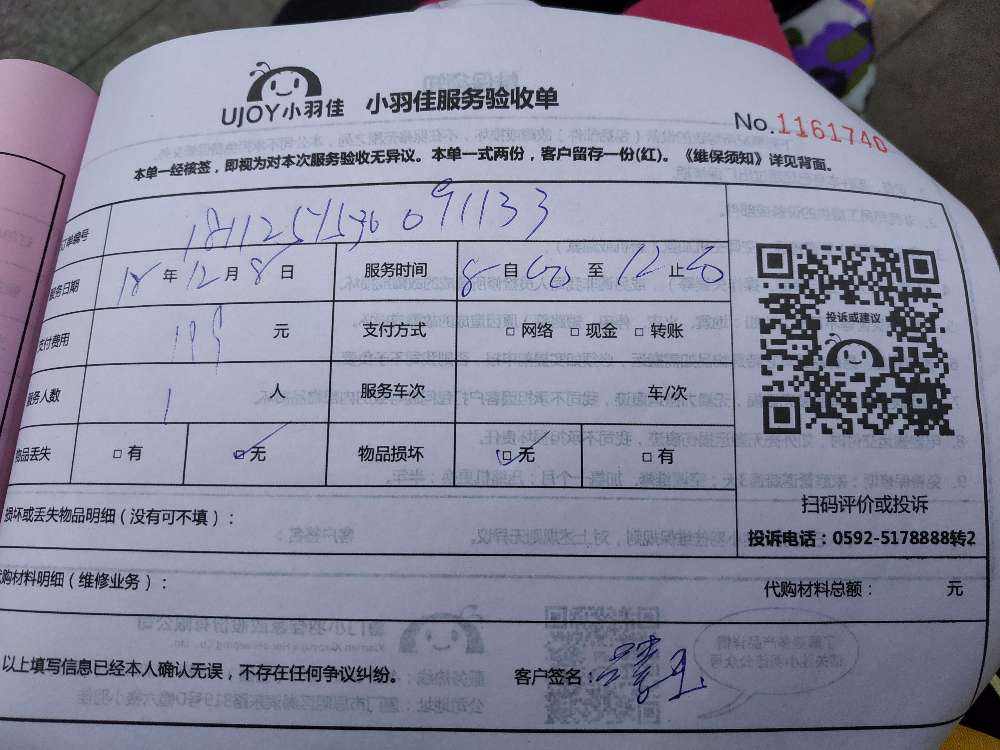 UJOY小羽佳 小羽佳服务验收单
No.1161740
本单一经核签，即视为对本次服务验收无异议。本单一式两份，客户留存一份(红)。《维保须知》详见背面。
订单编号
服务日期 18 年 12 月 8 日 服务时间 8 自 00 至 12 止 00
支付费用 199 元 支付方式 □ 网络 □ 现金 □ 转账
服务人数 1 人 服务车次 车/次
物品丢失 □ 有 □ 无 物品损坏 □ 无 □ 有
投诉或建议
扫码评价或投诉
投诉电话：0592-5178888转2
损坏或丢失物品明细（没有可不填）：
代购材料明细（维修业务）： 代购材料总额： 元
以上填写信息已经本人确认无误，不存在任何争议纠纷。 客户签名：